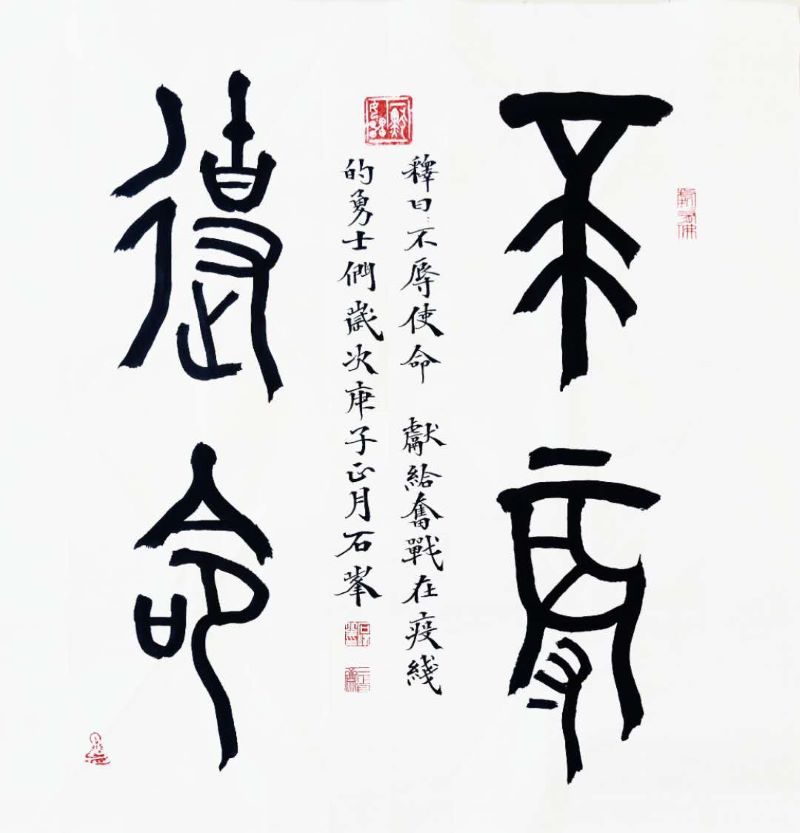 不辱
釋曰不辱使命 獻給奮戰在疫綫
的勇士們歲次庚子正月石峯
使命